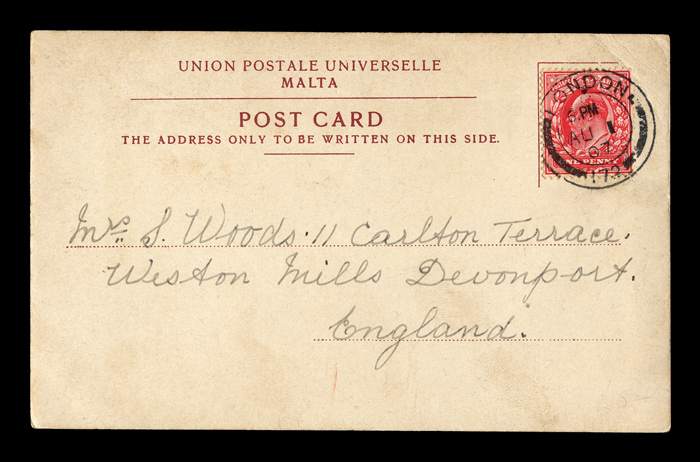 UNION POSTALE UNIVERSELLE
MALTA
POST CARD
THE ADDRESS ONLY TO BE WRITTEN ON THIS SIDE.
LONDON.
6.PM
AU 1
07
172
ONE PENNY
Mrs. S. Woods. 11 Carlton Terrace.
Weston Mills Devonport.
England.